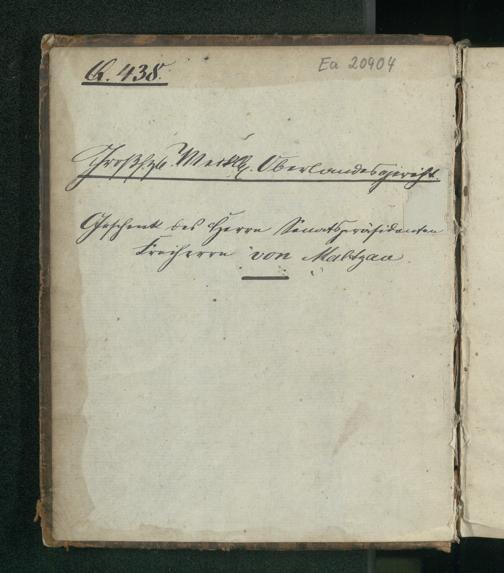 G. 438.
Ea 20904
Großhzgl. Mecklbg. Oberlandesgericht.
Geschenk des Herrn Senatspräsidenten
Freiherrn von Maltzan